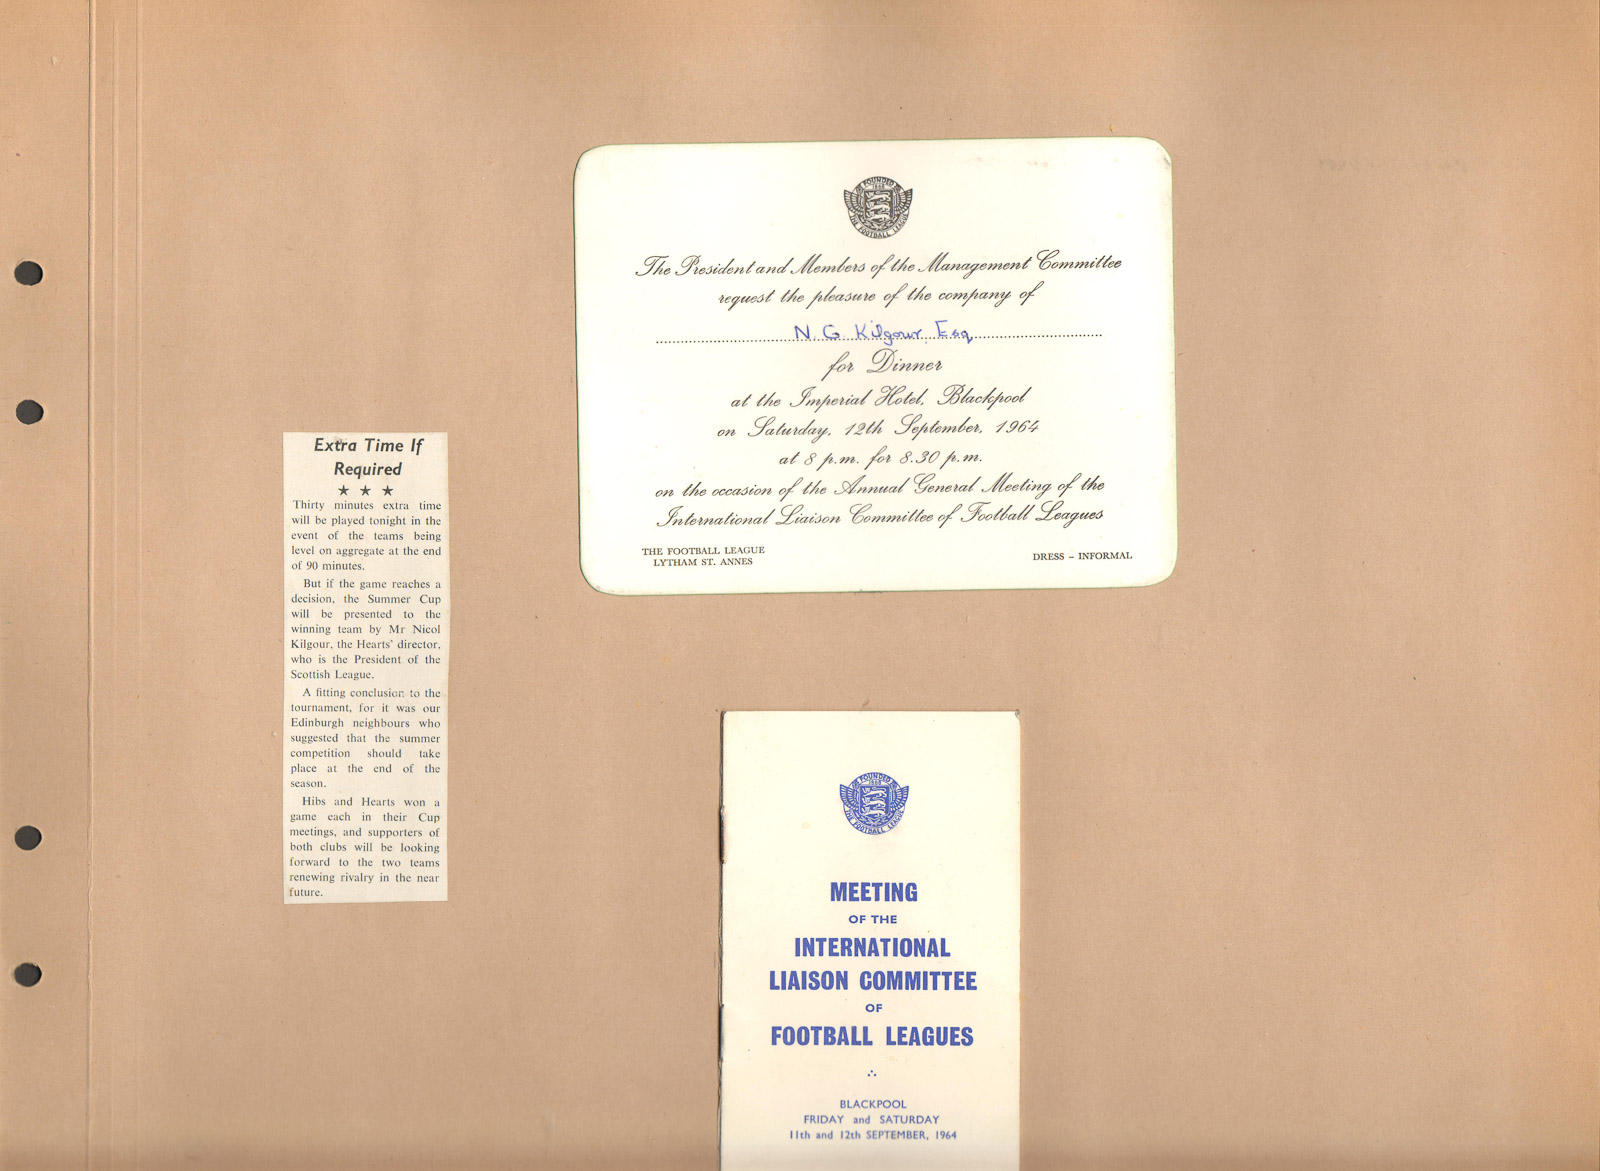 Extra Time If
Required
★ ★ ★
Thirty minutes extra time
will be played tonight in the
event of the teams being
level on aggregate at the end
of 90 minutes.
But if the game reaches a
decision, the Summer Cup
will be presented to the
winning team by Mr Nicol
Kilgour, the Hearts' director,
who is the President of the
Scottish League.
A fitting conclusion to the
tournament, for it was our
Edinburgh neighbours who
suggested that the summer
competition should take
place at the end of the
season.
Hibs and Hearts won a
game each in their Cup
meetings, and supporters of
both clubs will be looking
forward to the two teams
renewing rivalry in the near
future.
FOUNDED
1888
THE FOOTBALL LEAGUE
The President and Members of the Management Committee
request the pleasure of the company of
N. G. Kilgour, Esq
for Dinner
at the Imperial Hotel, Blackpool
on Saturday, 12th September, 1964
at 8 p.m. for 8.30 p.m.
on the occasion of the Annual General Meeting of the
International Liaison Committee of Football Leagues
THE FOOTBALL LEAGUE
LYTHAM ST. ANNES
DRESS – INFORMAL
FOUNDED
1888
THE FOOTBALL LEAGUE
MEETING
OF THE
INTERNATIONAL
LIAISON COMMITTEE
OF
FOOTBALL LEAGUES
BLACKPOOL
FRIDAY and SATURDAY
11th and 12th SEPTEMBER, 1964